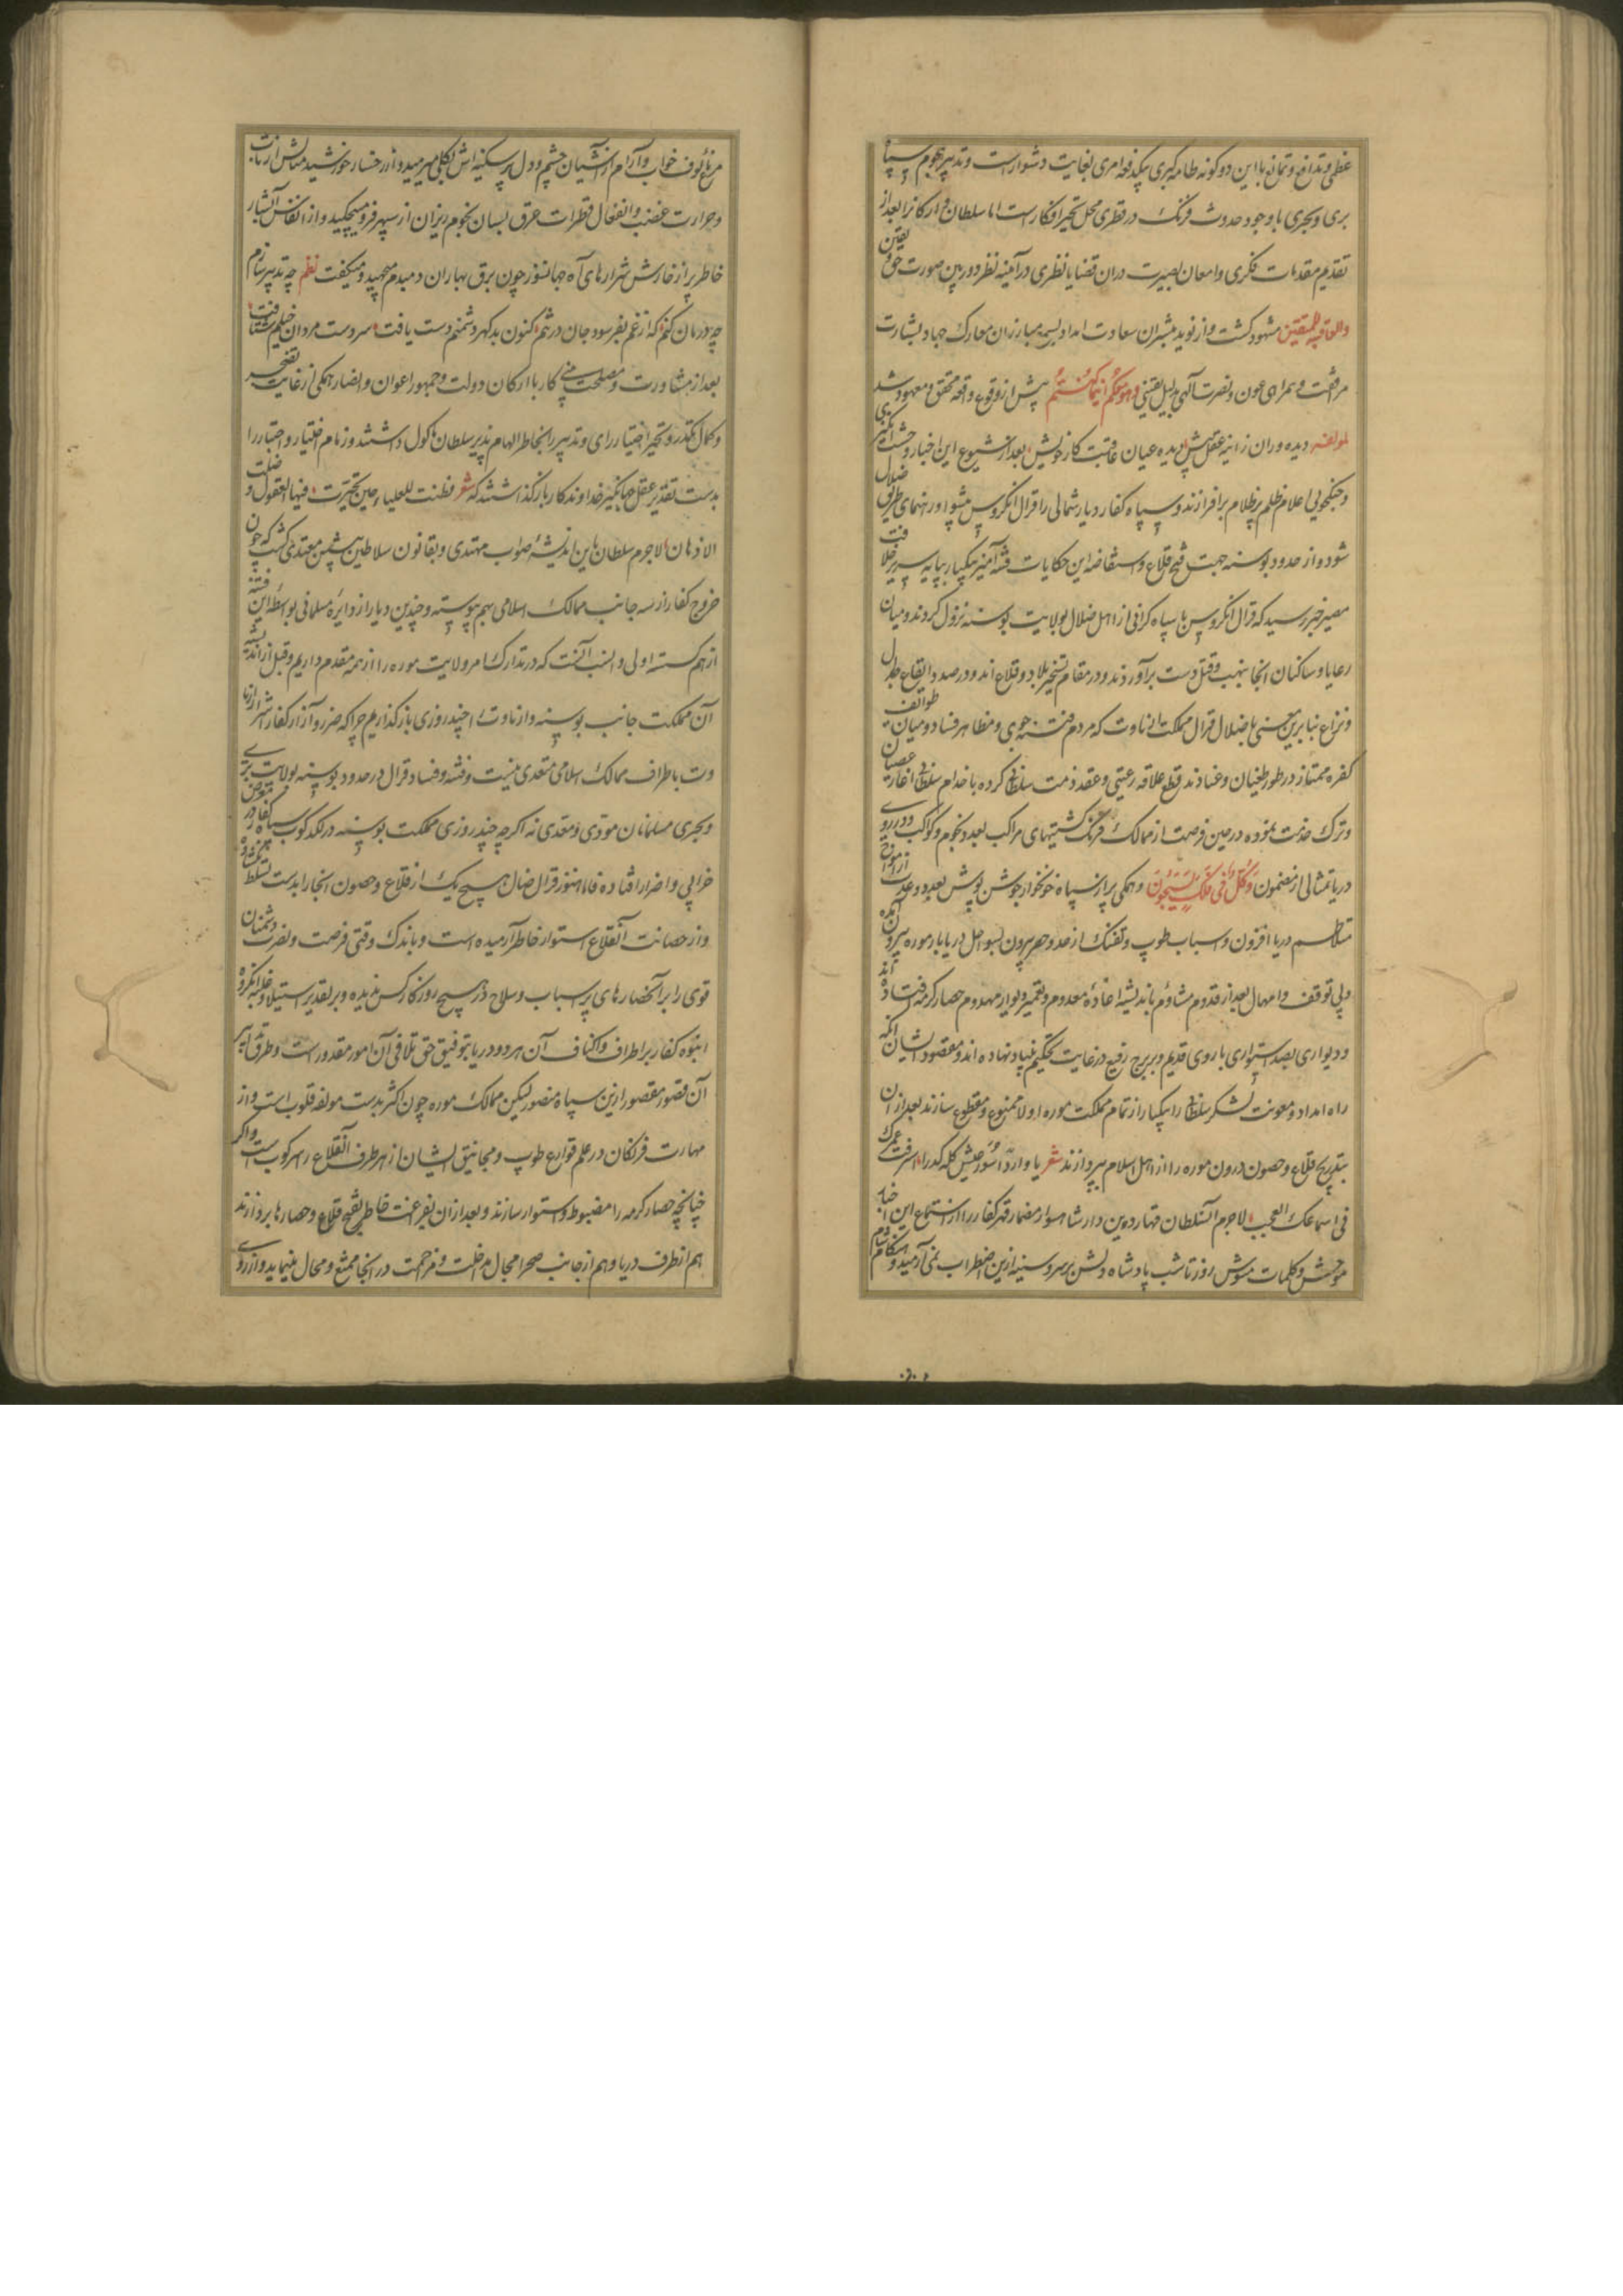 عظمی و تدافع و تمانع با این دو کونه طامه کبری بیکدفعه امری بغایت دشوار است و تدبیر هجوم سپاه
بری و بحری با وجود حدوث فرنک در قطری محل تحیر افکار است اما سلطان و ارکانرا بعد از
تقدیم مقدمات فکری و امعان بصیرت دران قضایا نظری در آینه نظر دوربین صورت حق یقین
والعاقبة للمتقین مشهود کشت و از نوید مبشران سعادت امداد مبارزان معارک جهاد بشارت
مرافقت و همراهی عون و نصرت آلهی بدلیل یقینی وهو معکم اینما کنتم پیش از وقوع واقعه محقق و معهود شد
لمولفه دیده وران زانیه عقل پیش دیده عیان عاقبت کار خویش بعد از شیوع این اخبار وحشت
و جنکجویی اعلام ظلم بر ظلام بر افرازند و سپاه کفار دیار شمالی را قرال انکروس پیشوا و رهنمای طریق ضلال
شود و از حدود بوسنه جهت فتح قلاع و استفاضه این حکایات فتنه آمیز بیکبار بپایه سریر خلافت
مصیر خبر رسید که قرال انکروس با سپاه کرانی از اهل ضلال بولایت بوسنه نزول کردند و میان
رعایا و ساکنان انجا بنهب و قتل دست برآوردند و در مقام تسخیر بلاد و قلاع اند و در صدد ایقاع جدال
و نزاع بنا برین معنی باضلال قرال مملکت ارناوت که مردم فتنه جوی و مظاهر فساد و میان طوائف
کفره ممتاز در طور طغیان و عنادند قطع علاقه رعیتی و عقد ذمت سلطانی کرده با خدام سلطانی اغاز عصیان
و ترک خدمت نموده درین فرصت از ممالک فرنک کشتیهای مراکب بعدد نجوم و کواکب در روی
دریا تمثالی از مضمون وکل فی فلک یسبحون و همکی پر از سپاه خونخوار جوشن پوش بعدد امواج
متلاطم دریا افزون و اسباب طوپ و تفنک از حد و حصر بیرون بسواحل دریا بار موره بیرون آمده
و بی توقف و امهال بعد از قدوم مشاؤم باندیشه اعاده معدوم و تعمیر دیوار مهدوم حصار کرمه افتاده اند
و دیواری بصد استواری با روی قدیم و بر برج رفیع در غایت تحکیم بنیاد نهاده اند و مقصود ایشان انکه
راه امداد و معونت لشکر سلطانی را بیکبار از تمام مملکت موره اولا ممنوع و مقطوع سازند بعد از ان
بتدریج قلاع و حصون درون موره را از اهل اسلام بپردازند شعر یا واردا سور عیش کله کدر اسرفت عمرک
فی اسماعک العجب لاجرم السلطان قهار دین دار شاهسوار مضمار قهر کفار را از استماع این اخبار
موحش و کلمات مشوش روز تا شب پادشاه دلش بر سر و سینه ازین اضطراب نمی آرمید و هنکام شام
مرغ مألوف خواب و آرام از آشیان چشم و دل پر سکینه اش بکلی میرمید و از رخسار خورشید مثالش از تاب
و حرارت غضب و انفعال قطرات عرق بسان نجوم ریزان از سپهر فرو میچکید و از انفاس آتشبار
خاطر پر از خارش شرارهای آه جهانسوز چون برق بهاران دمبدم میجهید و میکفت نظم چه تدبیر سازم
چه درمان کنم که از غم بفرسود جان در تنم کنون بدکهر دشمنم دست یافت سر و ست مردان
بعد از مشاورت و مصلحت بینی کار با ارکان دولت و جمهور اعوان و انصار همکی از غایت تضجر
و کمال تکدر و تحیر اختیار رای و تدبیر را بخاطر الهام پذیر سلطان ماکول داشتند و زمام اختیار و اختبار را
بدست تقدیر عقل جهانکیر خداوندکار باز کذاشتند که شعر فطنت للعلیاء حین تحیرت فیها العقول و ضلت
الاذهان لاجرم سلطان باین اندیشه صواب مهتدی و بقانون سلاطین پیشین معتدی کشت که چون
خروج کفار از سه جانب ممالک اسلامی بهم پیوسته و چندین دیار از دایره مسلمانی بواسطه این فتنه
از هم کسسته اولی و انسب آنست که در تدارک امر ولایت موره را از همه مقدم داریم و قبل از اندیشه
آن مملکت جانب بوسنه و ارناوت را چند روزی باز کذاریم چرا که ضرر و آزار کفار
وت باطراف ممالک اسلامی متعدی نیست و فتنه و فساد قرال در حدود بوسنه بولایت بری
و بحری مسلمانان مودی و معدی نه اکرچه چند روزی مملکت بوسنه در لکدکوب سپاه کفار
خرابی و اضرار افتاده فاما هنوز قرال ضال هیچ یک از قلاع و حصون انجا را بدست تسلط
و از حصانت آن قلاع استوار خاطر آرمیده است و باندک وقتی فرصت و نصرت دشمنان
قوی را بر آنحصارهای پر اسباب و سلاح در هیچ روزکار کس ندیده و بر تقدیر استیلا و غلبه انکروه
انبوه کفار بر اطراف و اکناف آن هر دو دریا بتوفیق حق تلافی آن امور مقدور است و طرق تدابیر
آن قصور مقصور ازین سپاه منصور لیکن ممالک موره چون اکثر بدست مولفه قلوب است و از
مهارت فرنکان در علم قوارع طوپ و مجانیق ایشان از هر طرف آن قلاع را سرکوب است و اکر
چنانچه حصار کرمه را مضبوط و استوار سازند و بعد ازان بفراغت خاطر بفتح قلاع و حصارها پردازند
هم از طرف دریا و هم از جانب صحرا مجال مداخلت و مزاحمت در انجا ممتنع و محال مینماید و از روی